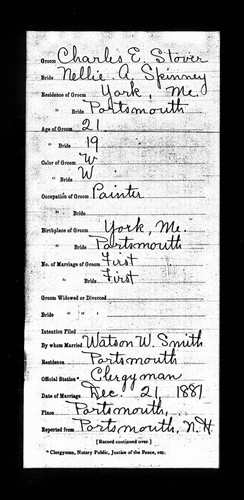 Groom Charles E. Stover
Bride Nellie A. Spinney
Residence of Groom York, Me.
" Bride Portsmouth
Age of Groom 21
" Bride 19
Color of Groom W
" Bride W
Occupation of Groom Painter
" Bride
Birthplace of Groom York, Me.
" Bride Portsmouth
No. of Marriage of Groom First
" Bride First
Groom Widowed or Divorced
Bride " "
Intention Filed
By whom Married Watson W. Smith
Residence Portsmouth
Official Station* Clergyman
Date of Marriage Dec. 21, 1887
Place Portsmouth,
Reported from Portsmouth, N.H.
[Record continued over.]
* Clergyman, Notary Public, Justice of the Peace, etc.